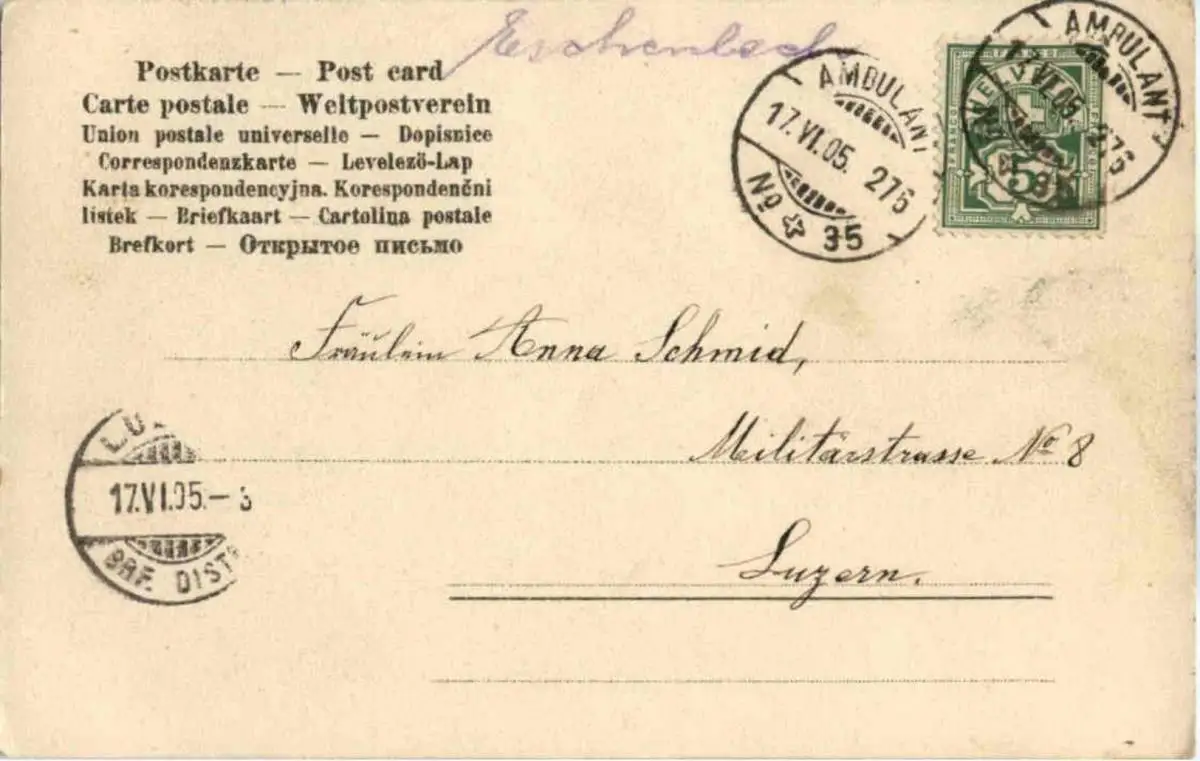 Eschenbach
Postkarte — Post card
Carte postale — Weltpostverein
Union postale universelle — Dopisnice
Correspondenzkarte — Levelező-Lap
Karta korespondencyjna. Korespondenční
listek — Briefkaart — Cartolina postale
Brefkort — Открытое письмо
AMBULANT
17.VI.05. 276
No 35
AMBULANT
17.VI.05. 276
No 35
HELVETIA
5
Fräulein Anna Schmid,
Militärstrasse No 8
Luzern.
LUZ
17.VI.05.– 3
BRF. DIST